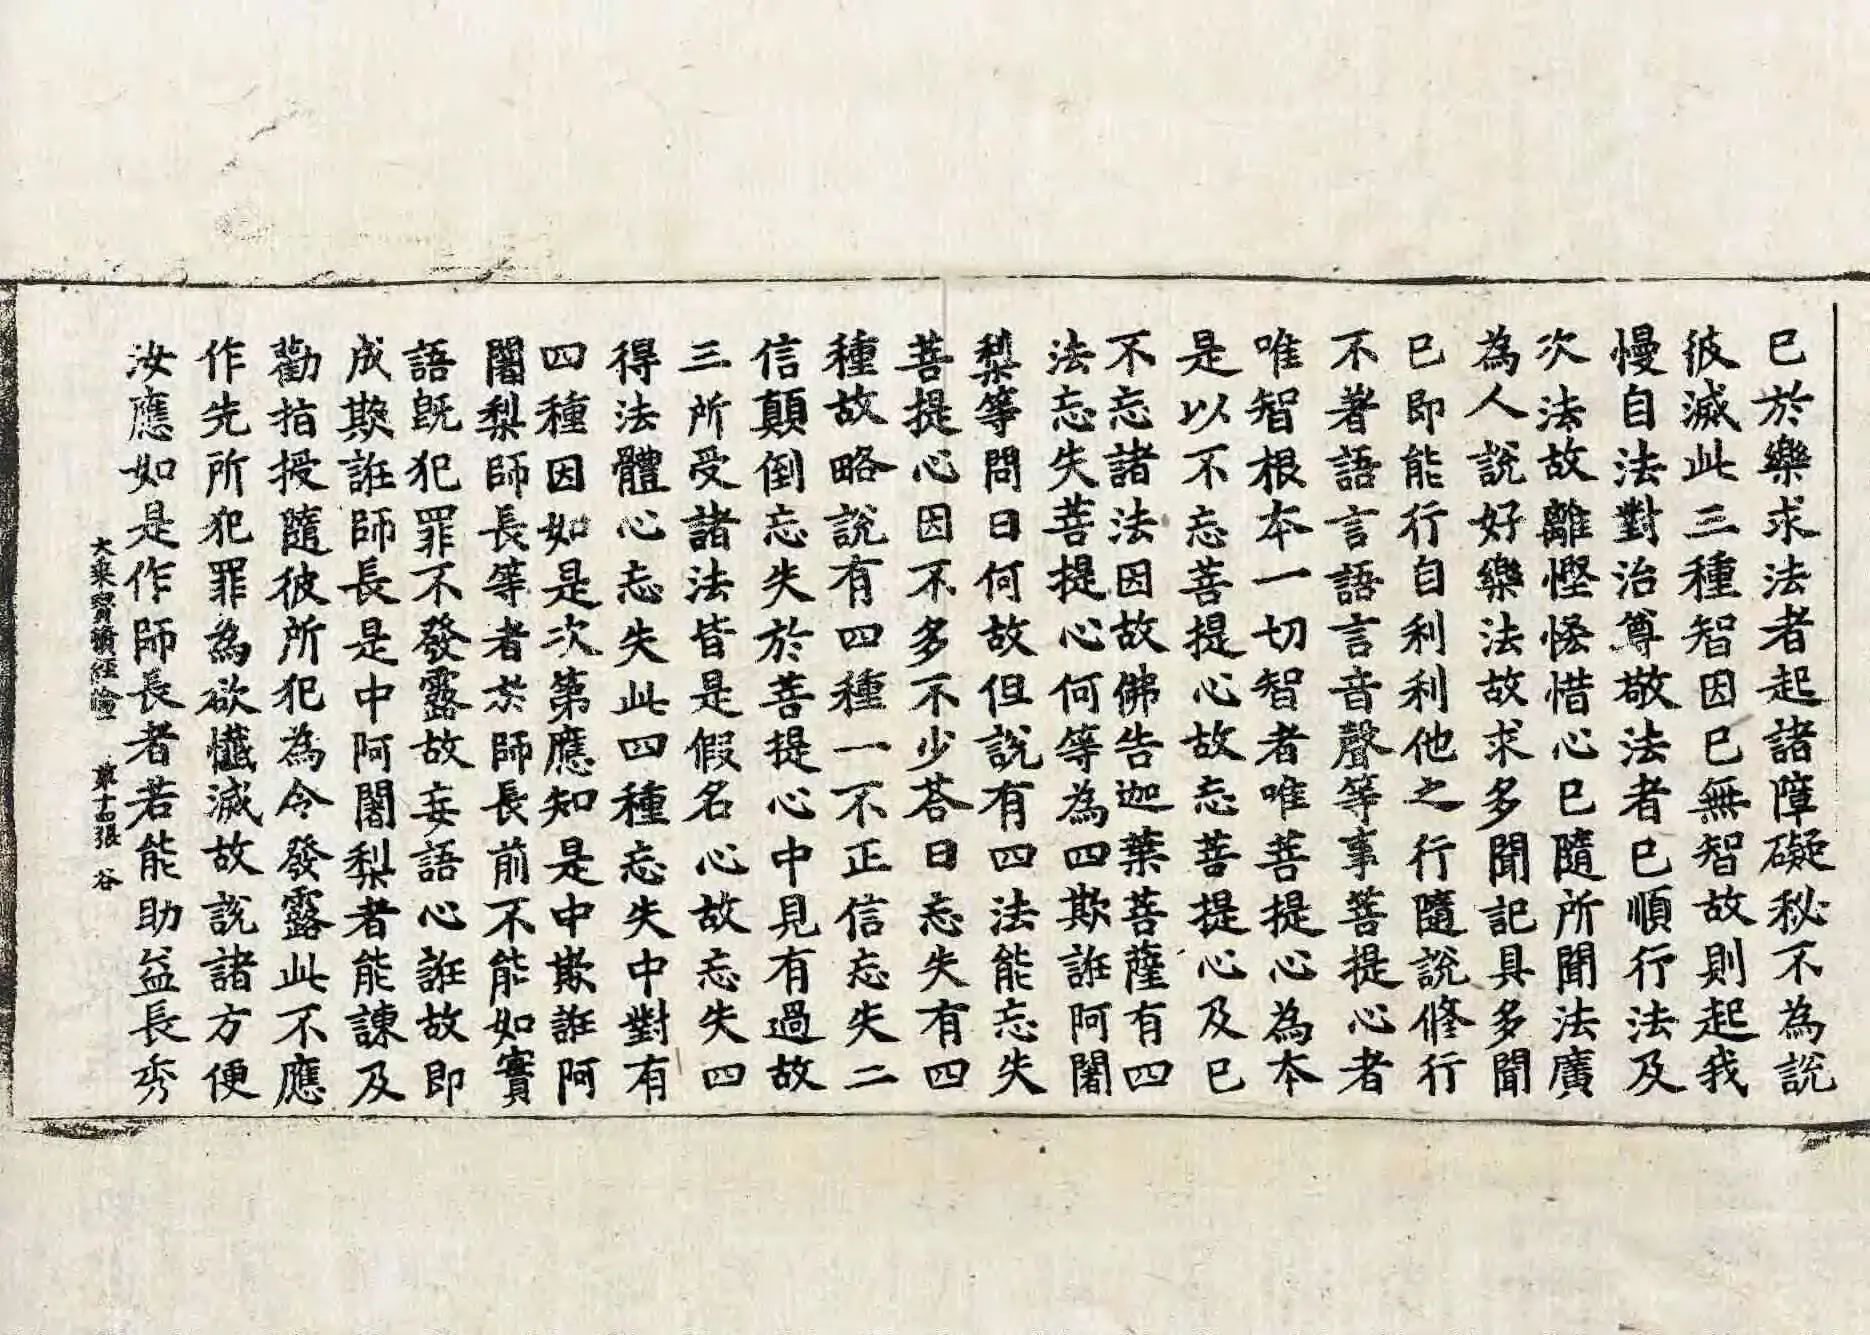 已於樂求法者起諸障礙秘不為說
彼滅此三種智因已無智故則起我
慢自法對治尊敬法者已順行法及
次法故離慳悋惜心已隨所聞法廣
為人說好樂法故求多聞記具多聞
已即能行自利利他之行隨說修行
不著語言語言音聲等事菩提心者
唯智根本一切智者唯菩提心為本
是以不忘菩提心故忘菩提心及已
不忘諸法因故佛告迦葉菩薩有四
法忘失菩提心何等為四欺誑阿闍
梨等問曰何故但說有四法能忘失
菩提心因不多不少荅曰忘失有四
種故略說有四種一不正信忘失二
信顛倒忘失於菩提心中見有過故
三所受諸法皆是假名心故忘失四
得法體心忘失此四種忘失中對有
四種因如是次第應知是中欺誑阿
闍梨師長等者於師長前不能如實
語旣犯罪不發露故妄語心誑故即
成欺誑師長是中阿闍梨者能諫及
勸指授隨彼所犯為令發露此不應
作先所犯罪為欲懺滅故說諸方便
汝應如是作師長者若能助益長秀
大乘寶積經論一 第十四張 谷